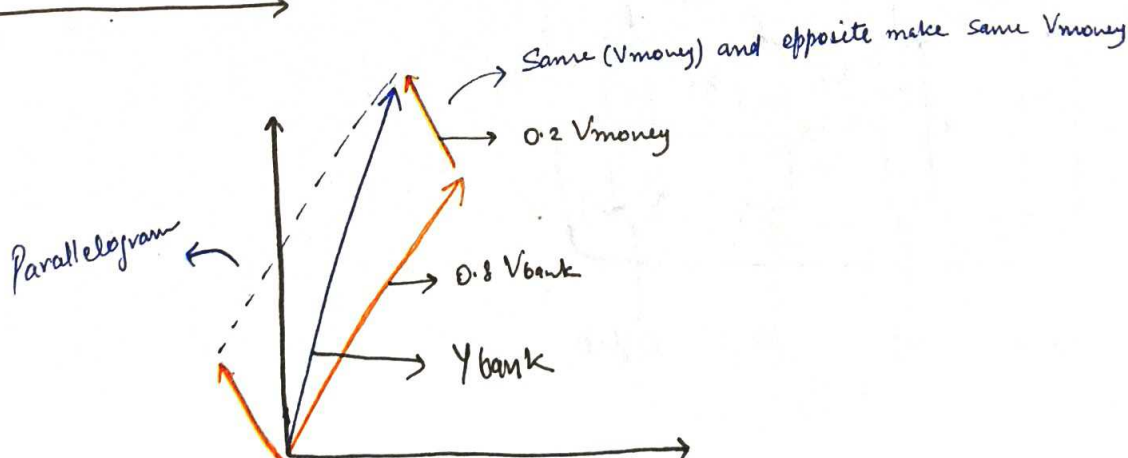 Same (Vmoney) and opposite make same Vmoney
0.2 Vmoney
Parallelogram
0.8 Vbank
Ybank